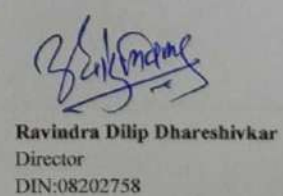 Ravindra Dilip Dhareshivkar
Director
DIN:08202758